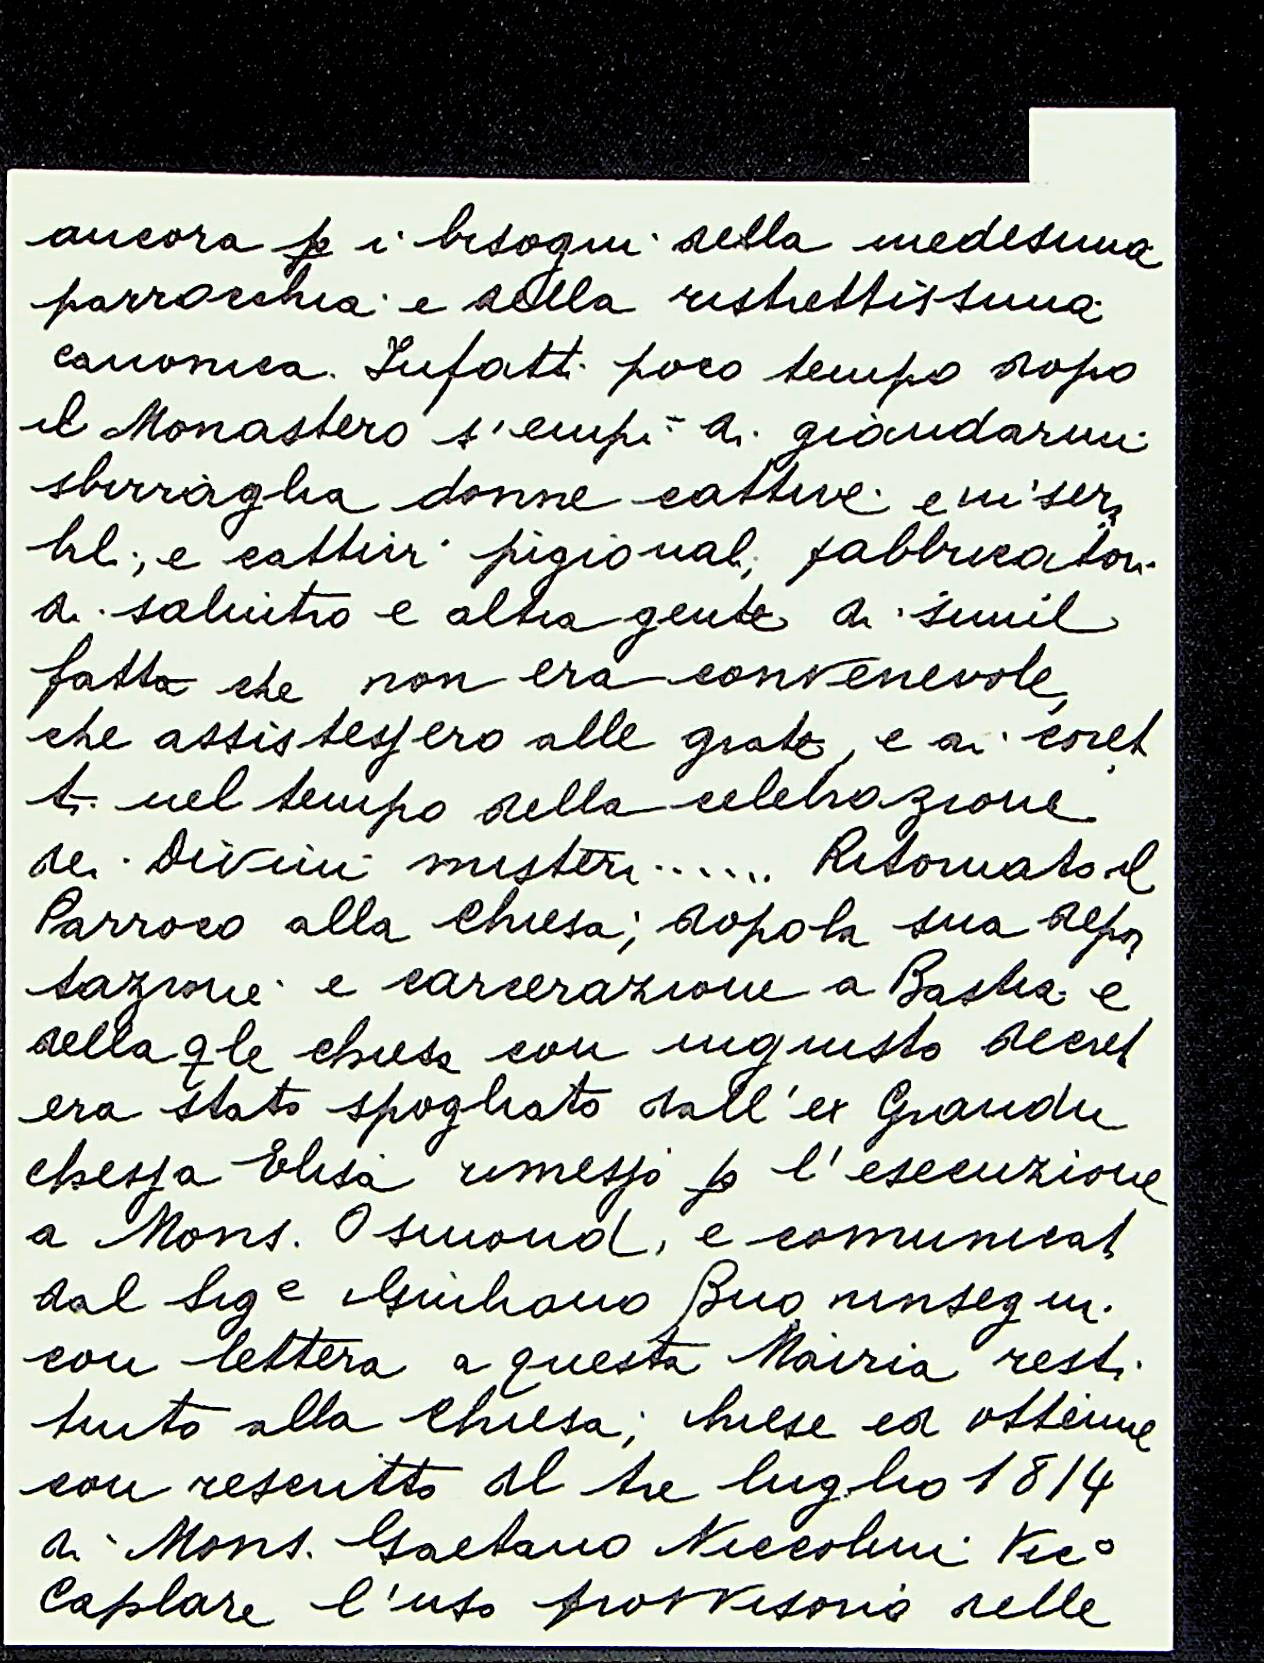 ancora p i bisogni della medesima
parrocchia e della ristrettissima
canonica. Infatti poco tempo dopo
il Monastero s'empì di giandarmi
sbirraglia donne cattive e miser
bli, e cattivi pigionali, fabbricatori
di salnitro e altra gente di simil
fatta che non era convenevole,
che assistessero alle grate, e ai coret
ti nel tempo della celebrazione
dei Divini misteri...... Ritornato il
Parroco alla Chiesa; dopo la sua depor
tazione e carcerazione a Bastia e
della qle chiesa con ingiusto decret
era stato spogliato dall'ex Grandu
chessa Elisa rimesso p l'esecuzione
a Mons. Osmond, e comunicat
dal Sige Giuliano Buoninsegni
con lettera a questa Mairia resti
tuito alla Chiesa; chiese ed ottenne
con rescritto del tre luglio 1814
di Mons. Gaetano Niccolini Vico
Caplare l'uso provvisorio delle